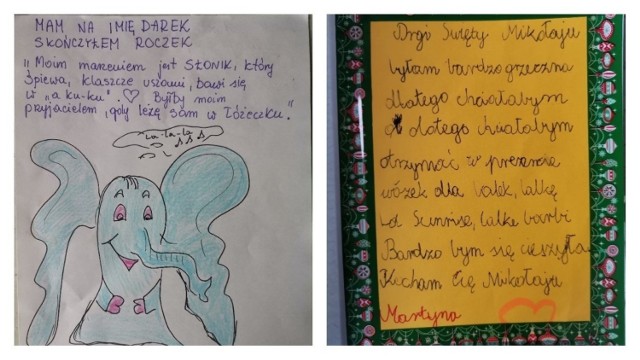 MAM NA IMIĘ DAREK
SKOŃCZYŁEM ROCZEK
"Moim marzeniem jest SŁONIK, który
śpiewa, klaszcze uszami, bawi się
w "a ku-ku". ♡ Byłby moim
przyjacielem, gdy leżę sam w łóżeczku."
La-la-la
Drgi Święty Mikołaju
byłam bardzo grzeczna
dlatego chciałabym
dlatego chciałabym
otrzymać w prezencie
wózek dla lalek, lalkę
Sunrise, lalkę barbi
Bardzo bym się cieszyła
Kocham Cię Mikołaju
Martyna